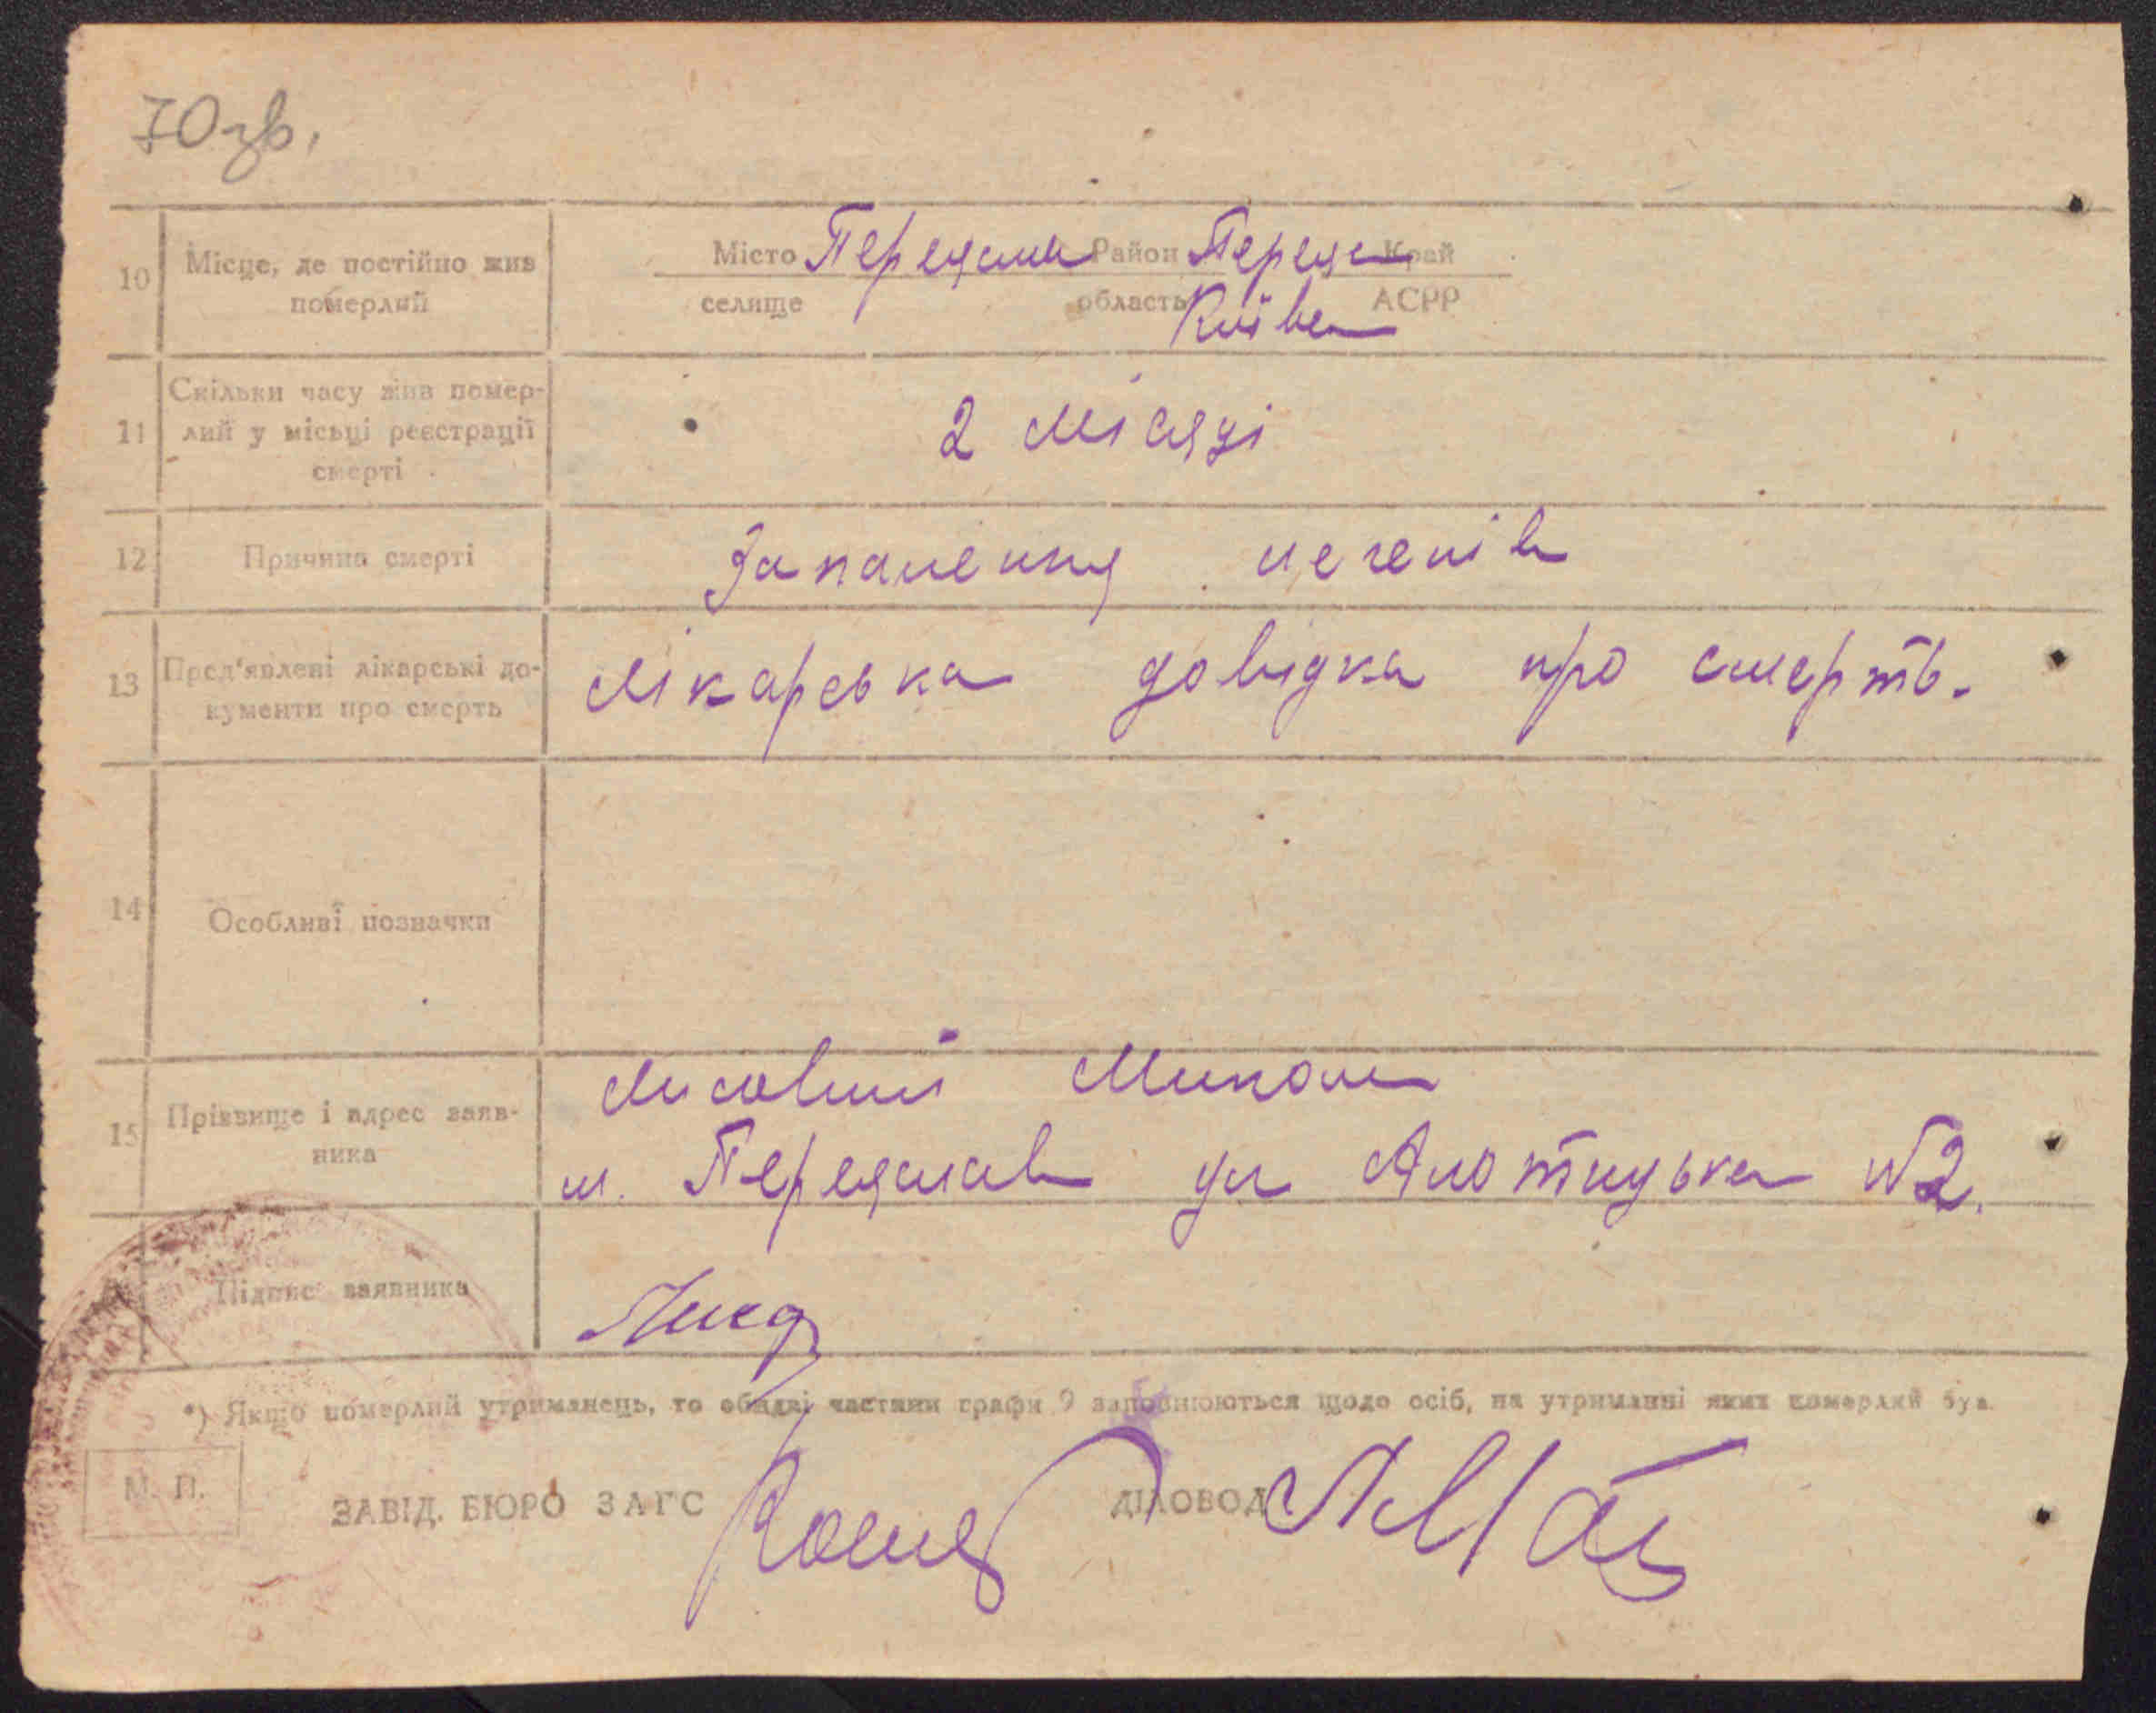 70 зв.
10 Місце, де постійно жив померлий
Місто Переяслав Район Переяс Край
селище область Київс АСРР
11 Скільки часу жив помер-
лий у місьці реєстрації
смерті
2 місяці
12 Причина смерті
Запалення легенів
13 Пред'явлені лікарські до-
кументи про смерть
Лікарська довідка про смерть.
14 Особливі позначки
15 Прізвище і адрес заяв-
ника
Лисовий Микола
м. Переяслав ул №2.
Підпис заявника
*) Якщо померлий утриманець, то обидві частини графи 9 заповнюються щодо осіб, на утриманні яких померлий був.
М. П.
ЗАВІД. БЮРО ЗАГС
ДІЛОВОД